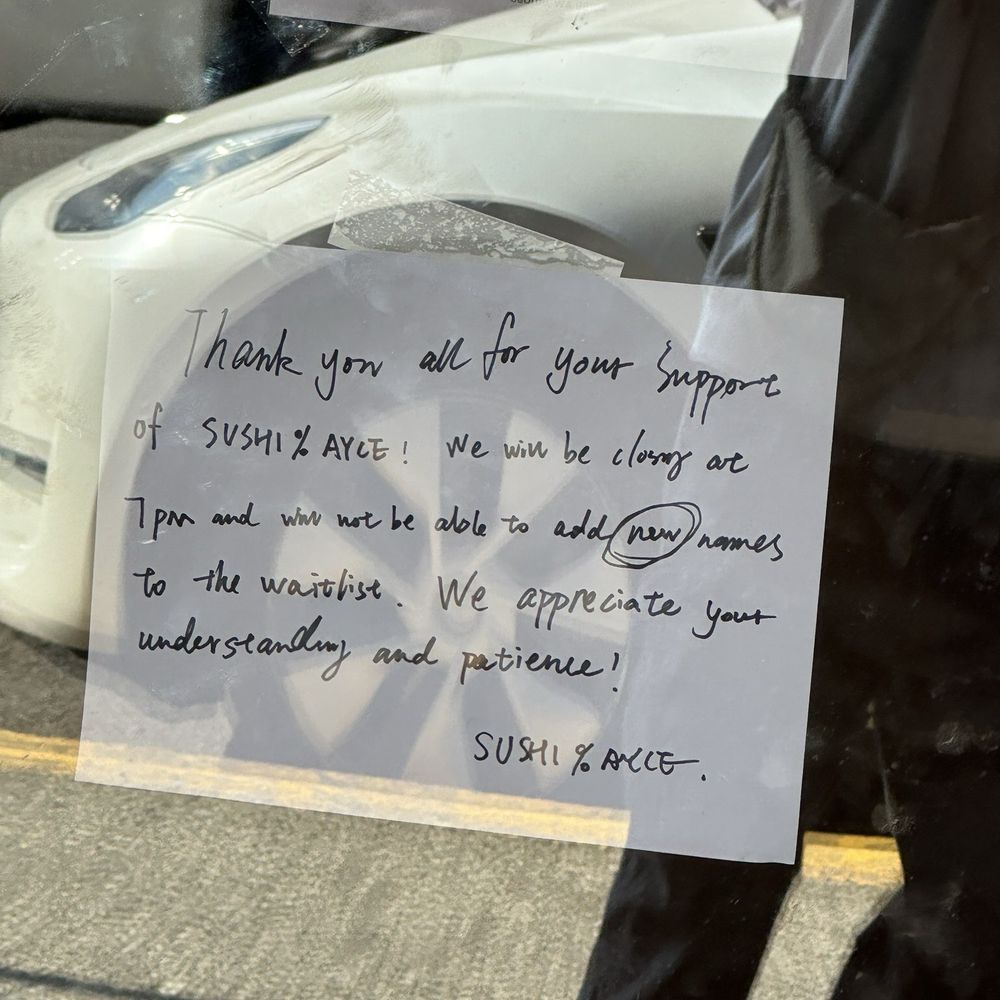 Thank you all for your support
of SUSHI % AYCE! We will be closing at
7pm and will not be able to add new names
to the waitlist. We appreciate your
understanding and patience!
SUSHI % AYCE.